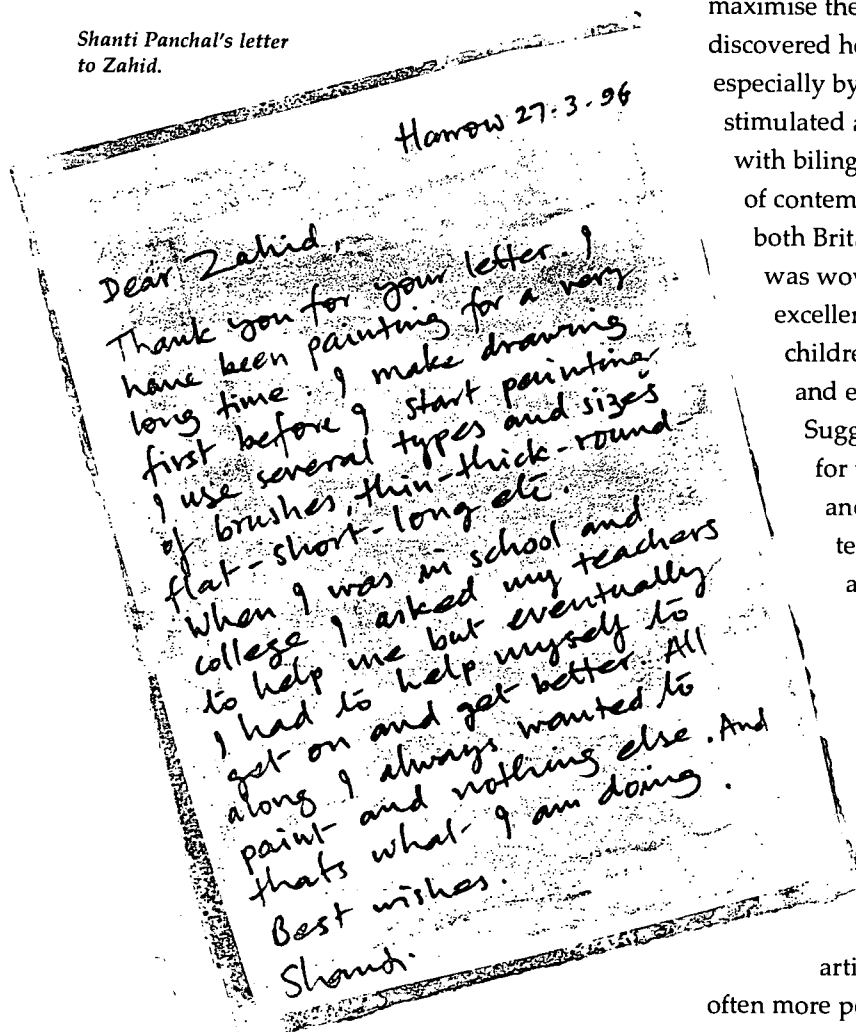 Shanti Panchal's letter
to Zahid.
Harrow 27-3-96
Dear Zahid,
Thank you for your letter. I
have been painting for a very
long time. I make drawing
first before I start painting
I use several types and sizes
of brushes, thin-thick-round-
flat-short-long etc.
When I was in school and
college I asked my teachers
to help me but eventually
I had to help myself to
get on and get better. All
along I always wanted to
paint and nothing else. And
thats what I am doing.
Best wishes.
Shanti.
maximise the
discovered
especially by
stimulated
with
of
both
was
and
for
often more